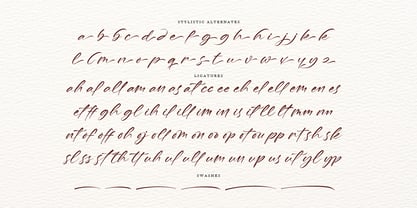 STYLISTIC ALTERNATES
a b c d e f g h i j k
l m n o p q r s t u v w y z
LIGATURES
ah al all am an as at cc ee ch el ell em en es
et ff gh gl ih il ill im in is it ll lt mm nn
nt of off oh oj oll om on oo op ot ou pp rr rt sh sk
sl ss st th tt uh ul ull um un up us ut yl yp
SWASHES